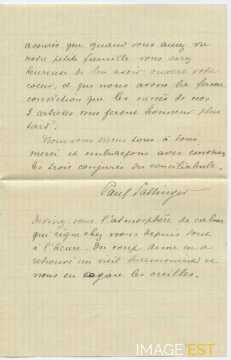 assurés que quand vous aurez vu
notre petite famille vous serez
heureuse de lui avoir ouvert votre
coeur, et que nous avons la ferme
conviction que les succès de nos
3 artistes vous feront honneur plus
tard.
vous tous à tous
merci et embrassons avec
les trois conjurés du conciliabule.
Paul
vous l'atmosphère de calme
qui règne chez nous depuis tout
à l'heure. Du coup Anne m'a
retrouvé un vieil harmonica et
nous en les oreilles.
IMAGE'EST